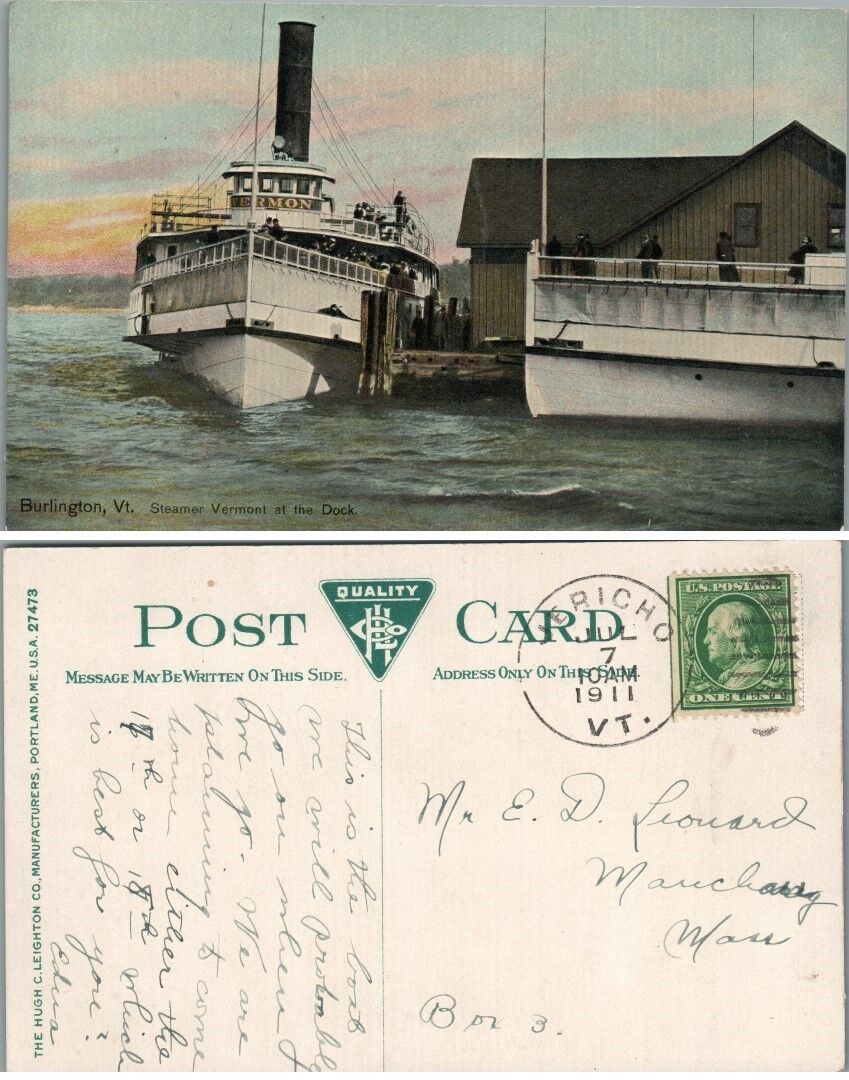 VERMON
Burlington, Vt. Steamer Vermont at the Dock.
THE HUGH C. LEIGHTON CO., MANUFACTURERS, PORTLAND, ME. U.S.A. 27473
POST CARD
QUALITY
MESSAGE MAY BE WRITTEN ON THIS SIDE.
ADDRESS ONLY ON THIS SIDE.
JERICHO
JUL
7
10 AM
1911
VT.
U.S. POSTAGE
ONE CENT
This is the boat
we will probably
go on when
we go. We are
planning to come
home either the
17th or 18th which
is best for you?
Edna
Mr E. D. Leonard
Manchaug
Mass
Box 3.